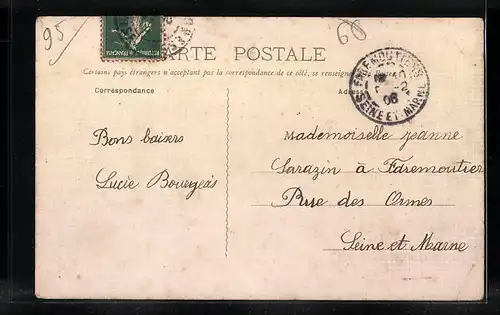 95
60
CARTE POSTALE
Certains pays étrangers n'acceptant pas la correspondance de ce côté, se renseigner à la Poste
Correspondance
Adresse
FAREMOUTIERS
SEINE-ET-MARNE
06
Bons baisers
Lucie Bourgeois
Mademoiselle Jeanne
Sarazin à Faremoutier
Rue des Ormes
Seine et Marne